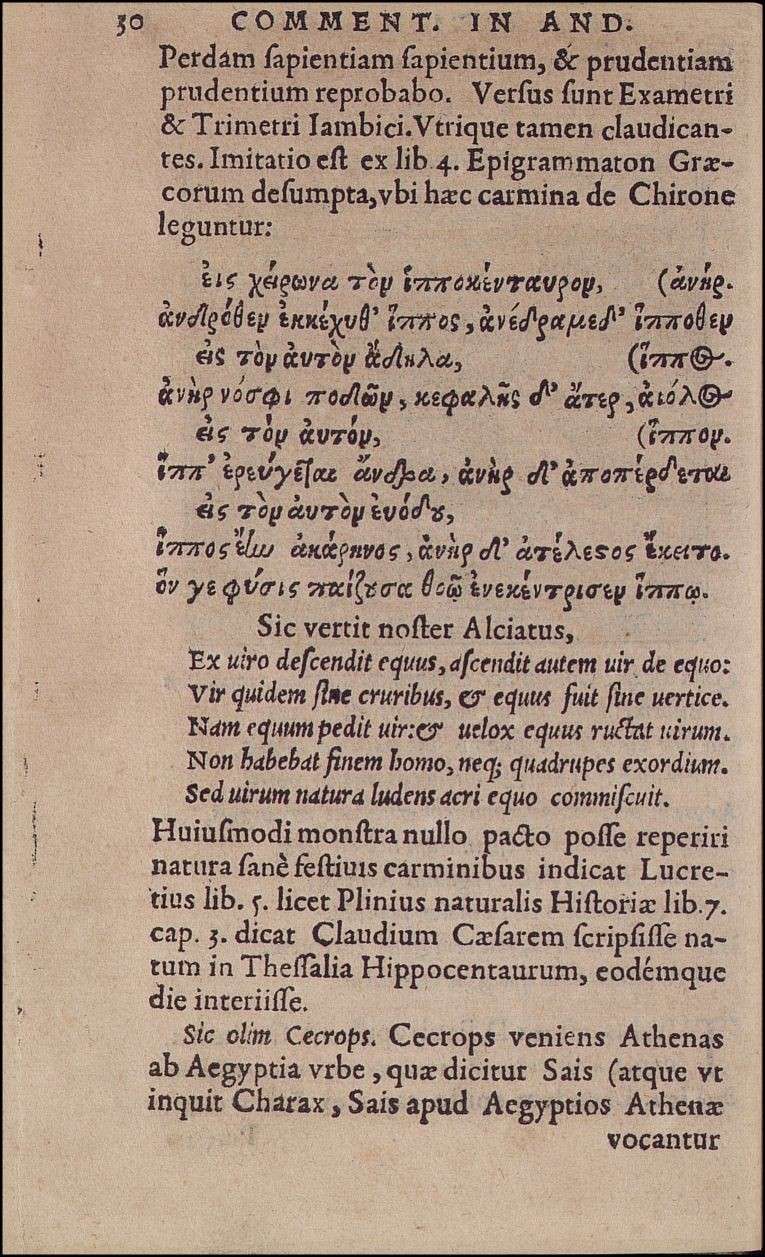 30 COMMENT. IN AND.
Perdam ſapientiam ſapientium, & prudentiam
prudentium reprobabo. Verſus ſunt Exametri
& Trimetri Iambici. Vtrique tamen claudican-
tes. Imitatio eſt ex lib 4. Epigrammaton Græ-
corum deſumpta, vbi hæc carmina de Chirone
leguntur:
ἐις χείρωνα τὸν ἱπποκένταυρον, (ἀνήρ.
ἀνδρόθεν ἐκκέχυθ' ἵππος, ἀνέδραμε δ' ἵπποθεν
εἰς τὸν ἀυτὸν ἄδηλα, (ἵππος.
ἀνὴρ νόσφι ποδῶν, κεφαλῆς δ' ἄτερ, ἀιόλος
εἰς τὸν ἀυτόν, (ἵππον.
ἵππ' ἐρεύγεται ἄνδρα, ἀνὴρ δ' ἀποπέρδεται
εἰς τὸν ἀυτὸν ἐυόδου,
ἵππος ἔην ἀκάρηνος, ἀνὴρ δ' ἀτέλεστος ἔκειτο.
ὅν γε φύσις παίζουσα θοῷ ἐνεκέντρισεν ἵππῳ.
Sic vertit noſter Alciatus,
Ex uiro deſcendit equus, aſcendit autem uir de equo:
Vir quidem ſine cruribus, & equus fuit ſine uertice.
Nam equum pedit uir: & uelox equus ructat uirum.
Non habebat finem homo, neq; quadrupes exordium.
Sed uirum natura ludens acri equo commiſcuit.
Huiuſmodi monſtra nullo pacto poſſe reperiri
natura ſanè feſtiuis carminibus indicat Lucre-
tius lib. 5. licet Plinius naturalis Hiſtoriæ lib. 7.
cap. 3. dicat Claudium Cæſarem ſcripſiſſe na-
tum in Theſſalia Hippocentaurum, eodémque
die interiiſſe.
Sic olim Cecrops. Cecrops veniens Athenas
ab Aegyptia vrbe, quæ dicitur Sais (atque vt
inquit Charax, Sais apud Aegyptios Athenæ
vocantur